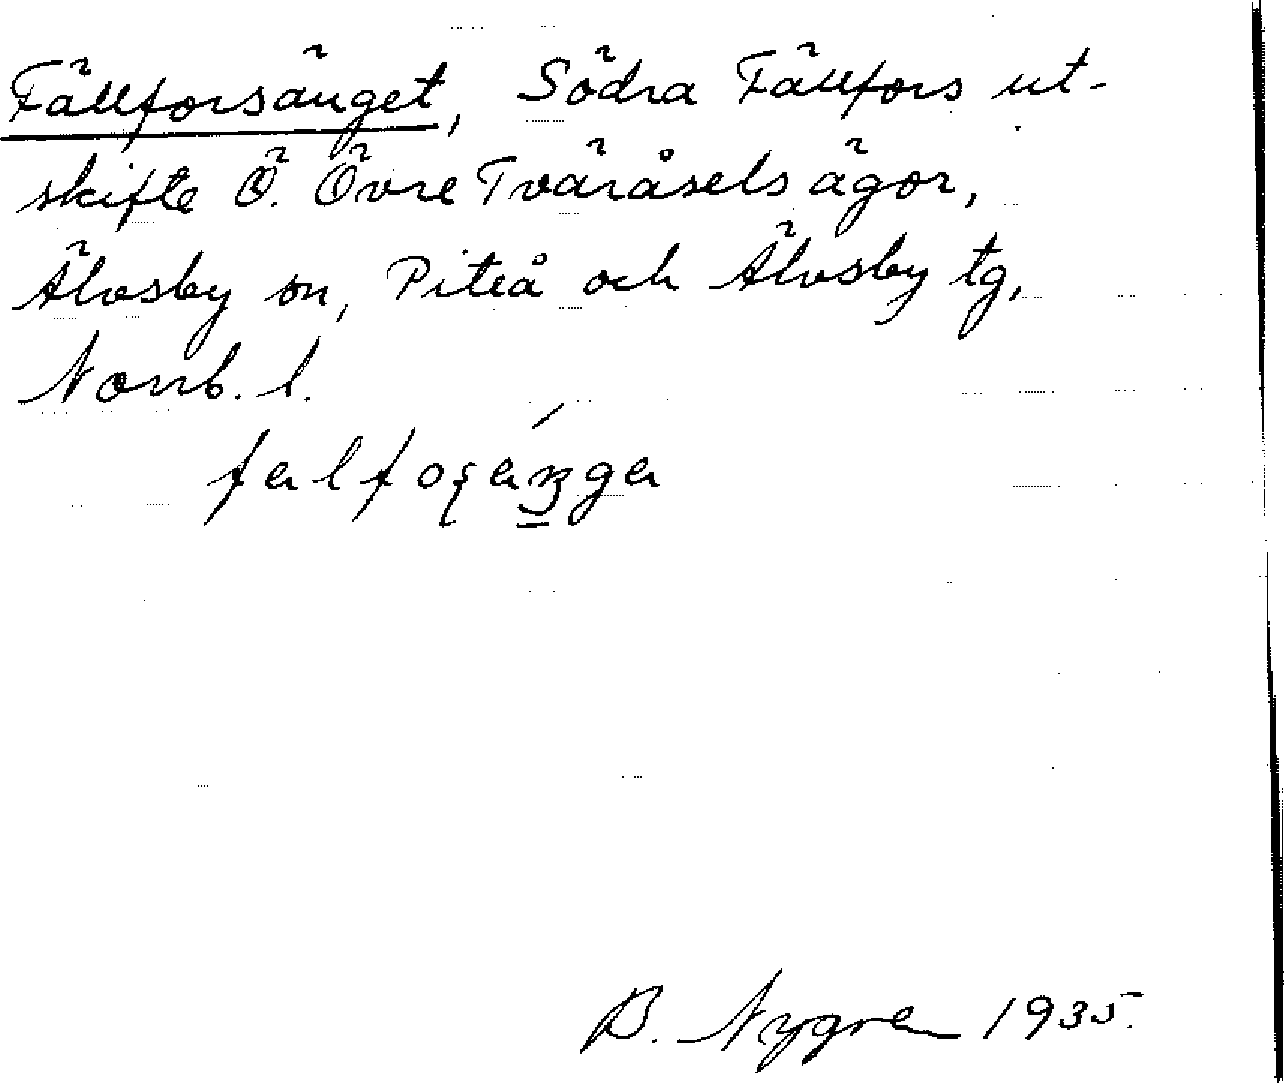 Fällforsänget, Södra Fällfors ut-
skifte Ö. Övre Tväråsels ägor,
Älvsby sn, Piteå och Älvsby tg,
Norrb. l.
B. Nygren 1935.